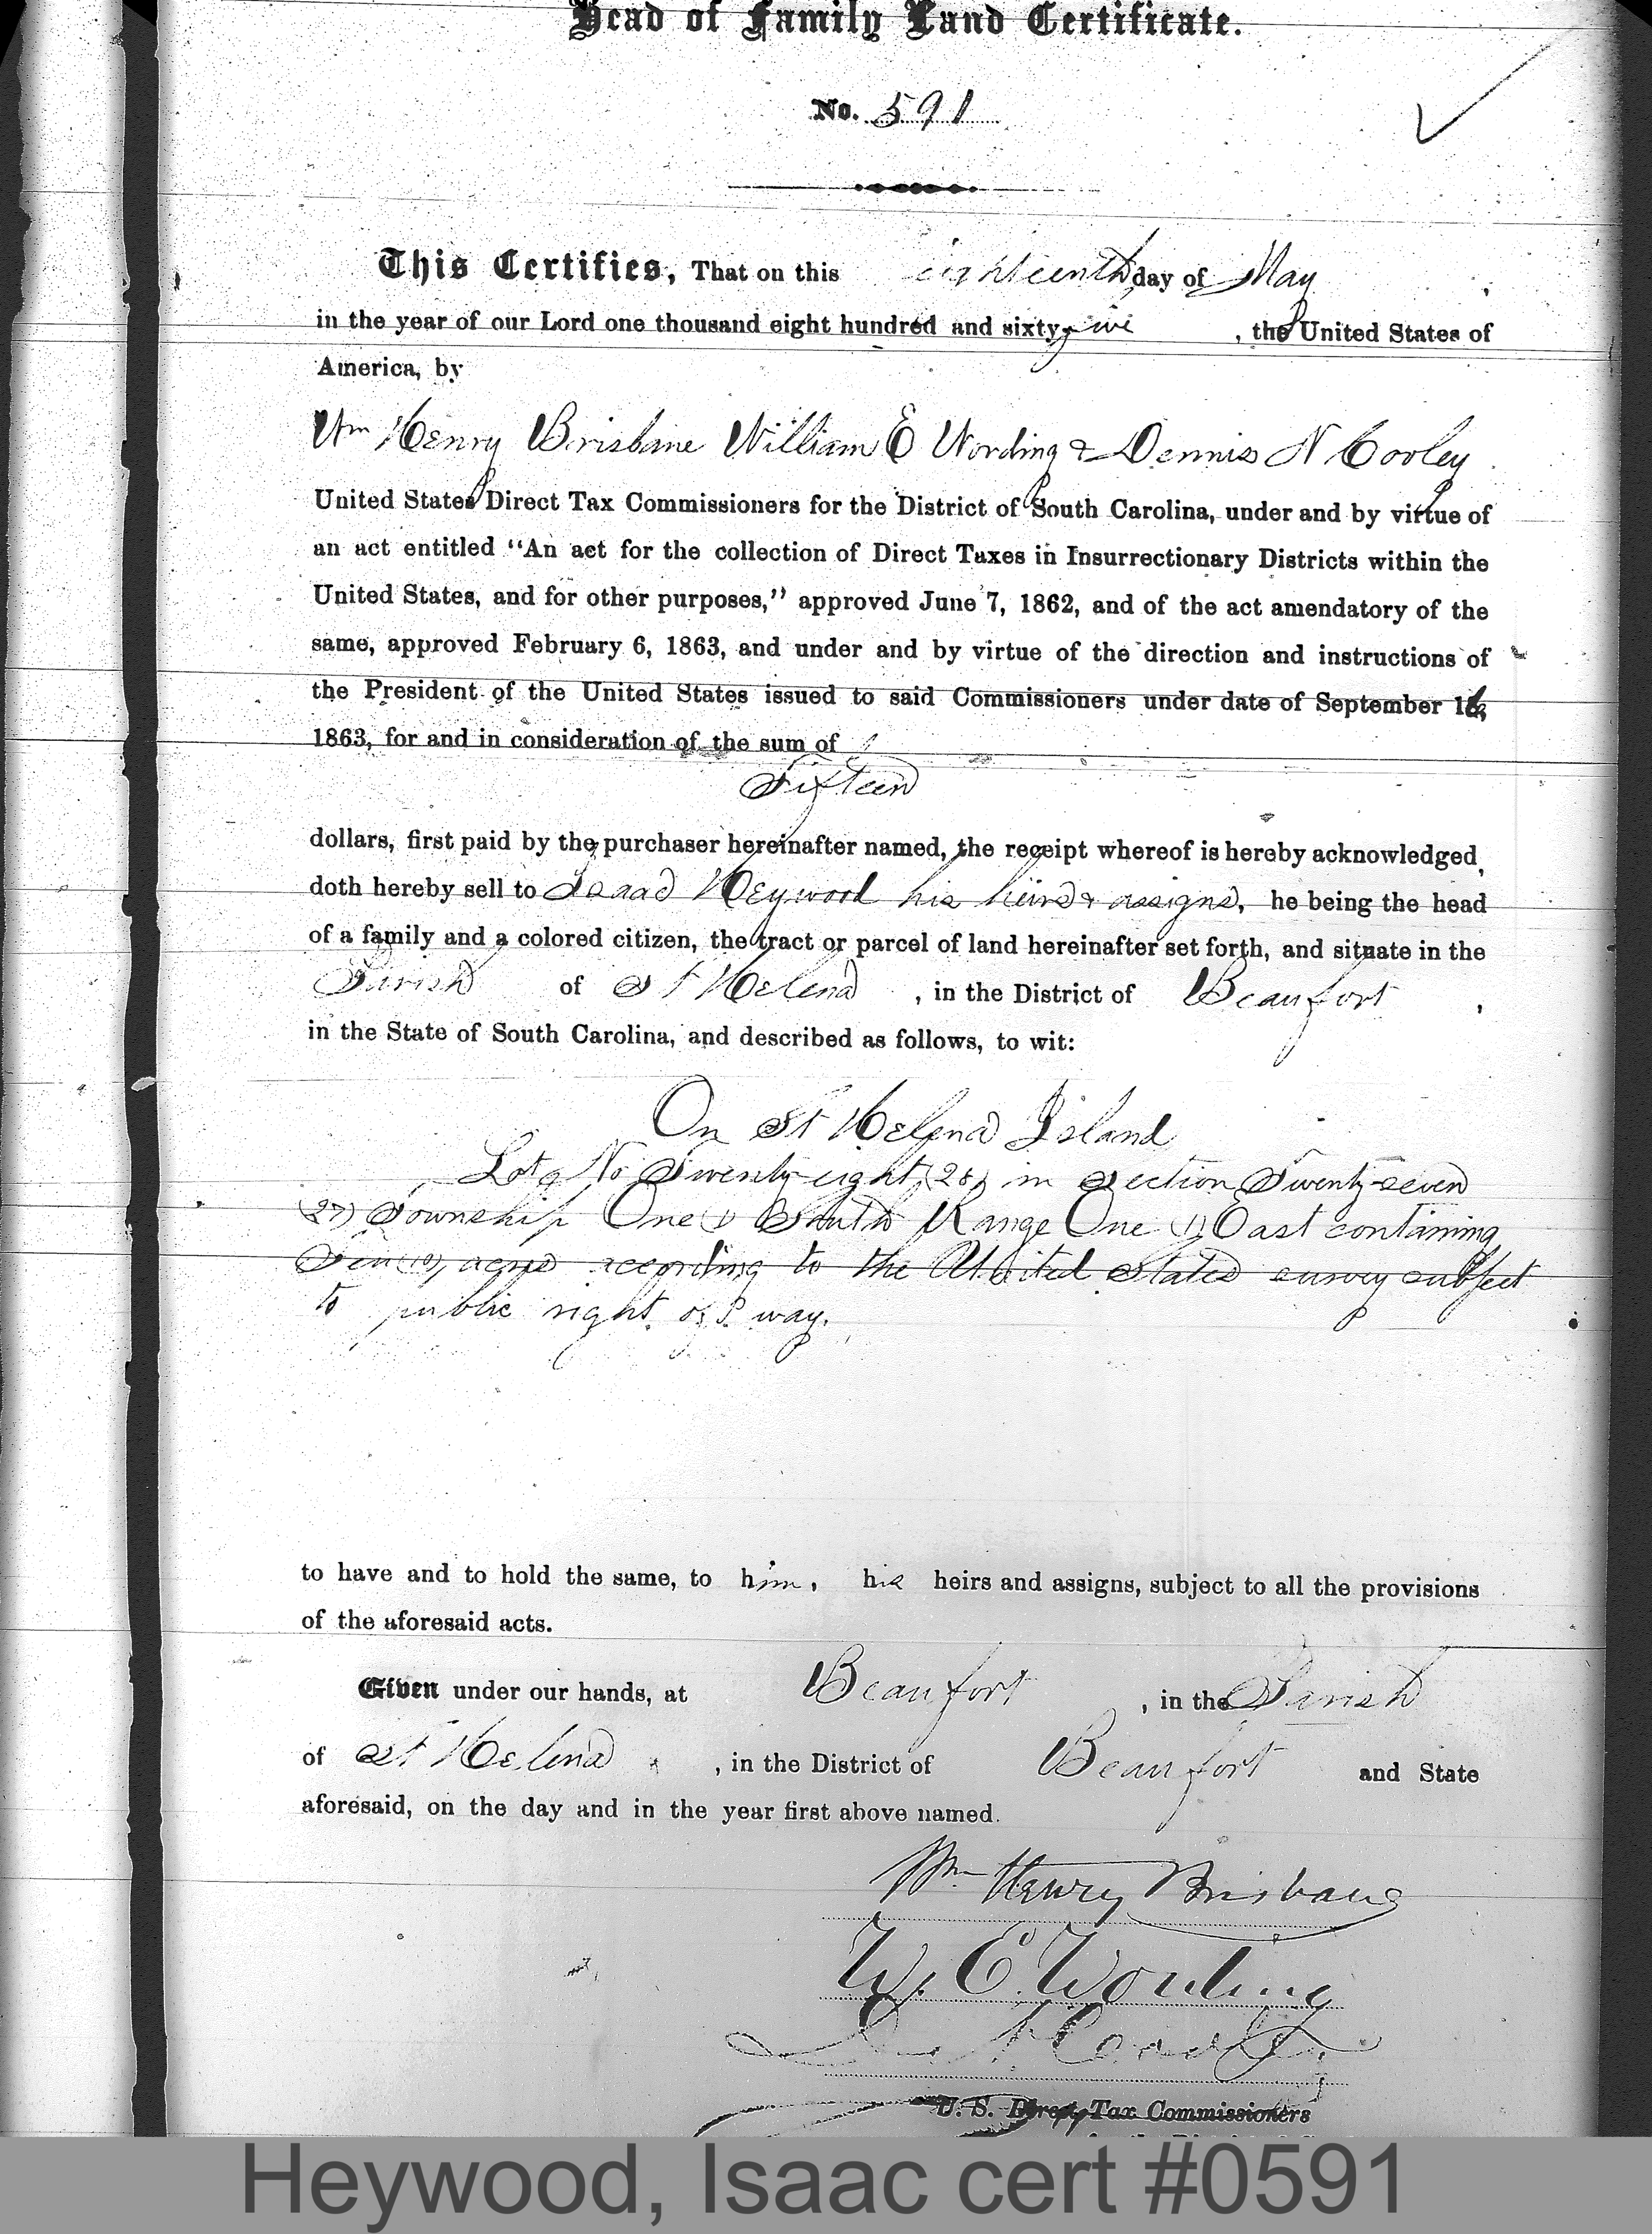 Head of Family Land Certificate.
No. 591
This Certifies, That on this eighteenth day of May,
in the year of our Lord one thousand eight hundred and sixty five, the United States of
America, by
Wm Henry Brisbane William E Wording & Dennis N Cooley
United States Direct Tax Commissioners for the District of South Carolina, under and by virtue of
an act entitled "An act for the collection of Direct Taxes in Insurrectionary Districts within the
United States, and for other purposes," approved June 7, 1862, and of the act amendatory of the
same, approved February 6, 1863, and under and by virtue of the direction and instructions of
the President of the United States issued to said Commissioners under date of September 16,
1863, for and in consideration of the sum of
Fifteen
dollars, first paid by the purchaser hereinafter named, the receipt whereof is hereby acknowledged,
doth hereby sell to Isaac Heywood his heirs & assigns, he being the head
of a family and a colored citizen, the tract or parcel of land hereinafter set forth, and situate in the
Parish of St Helena, in the District of Beaufort,
in the State of South Carolina, and described as follows, to wit:
On St Helena Island
Lot No Twenty-eight (28) in Section Twenty-seven
(27) Township One (1) South Range One (1) East containing
Ten (10) acres according to the United States survey subject
to public right of way.
to have and to hold the same, to him, his heirs and assigns, subject to all the provisions
of the aforesaid acts.
Given under our hands, at Beaufort, in the Parish
of St Helena, in the District of Beaufort and State
aforesaid, on the day and in the year first above named.
Wm Henry Brisbane
W. E. Wording
D. N. Cooley
U. S. Direct Tax Commissioners
Heywood, Isaac cert #0591